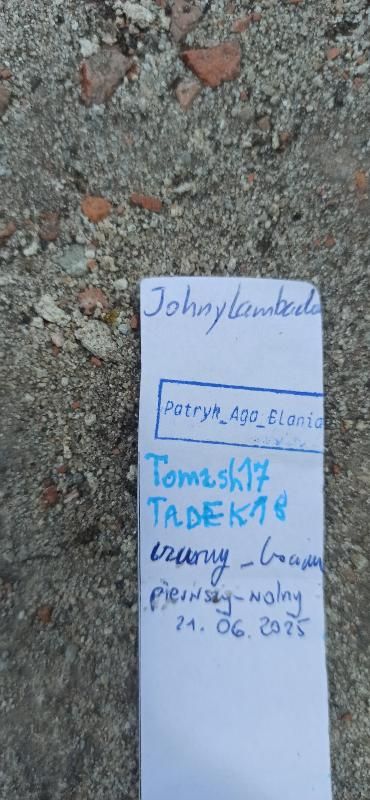 JohnyLambada
Patryk_Aga_Blania
Tomash17
TADEK18
czarny_
pierwszy-wolny
21. 06. 2025